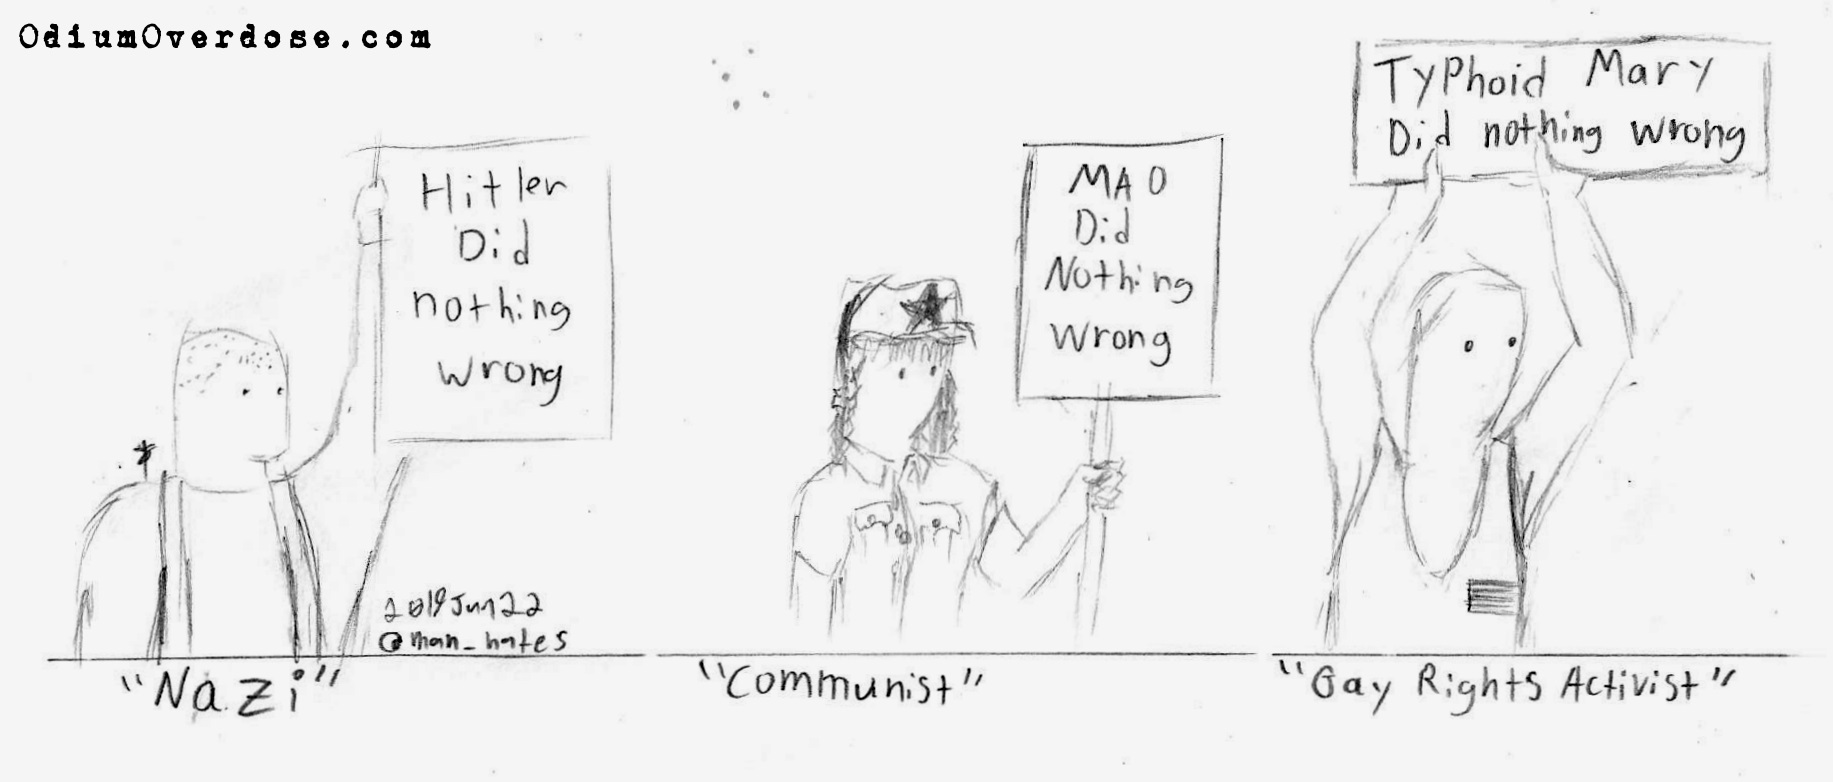 OdiumOverdose.com
Hitler
Did
nothing
wrong
2019Jun22
@man_hates
"Nazi"
MAO
Did
Nothing
Wrong
"Communist"
Typhoid Mary
Did nothing wrong
"Gay Rights Activist"